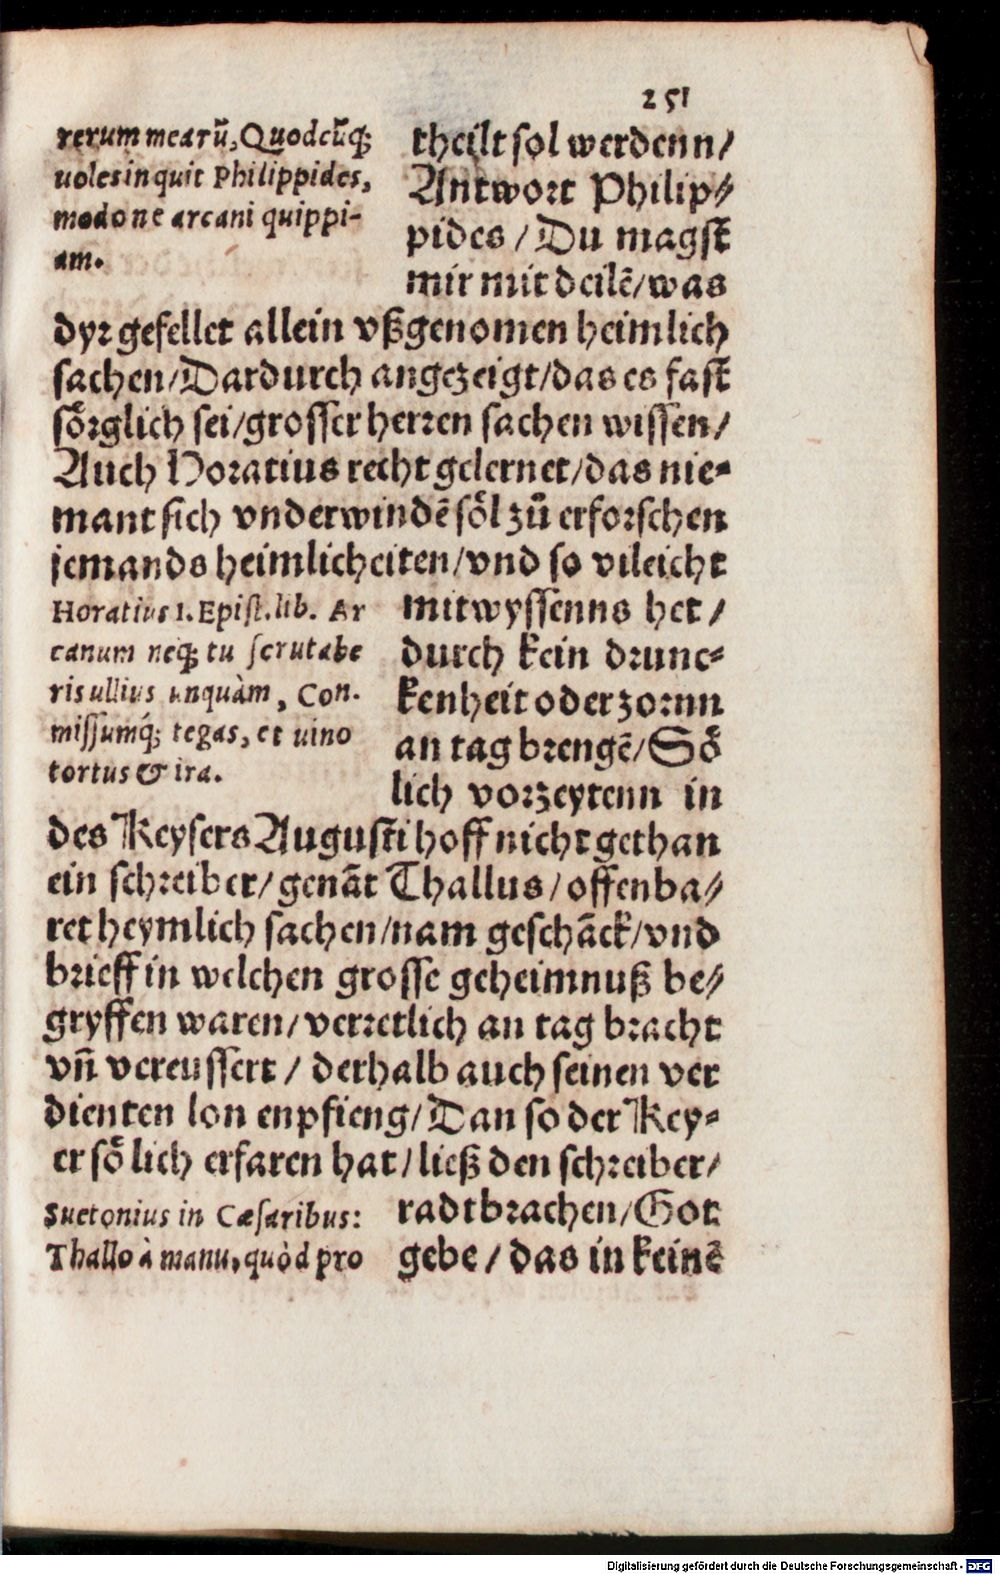 251
rerum mearū, Quodcūq;
uoles inquit Philippides,
modo ne arcani quippi-
am.
theilt sol werdenn/
Antwort Philip⸗
pides / Du magst
mir mit deilē/was
dyr gefellet allein vßgenomen heimlich
sachen/Dardurch angezeigt/das es fast
soͤrglich sei/grosser herren sachen wissen/
Auch Horatius recht gelernet/das nie⸗
mant sich vnderwindē soͤl zuͦ erforschen
jemands heimlicheiten/vnd so vileicht
Horatius 1. Epist. lib. Ar
canum neq; tu scrutabe
ris ullius unquàm, Com.
missumq́; tegas, et uino
tortus & ira.
mitwyssenns het /
durch kein drunc⸗
kenheit oder zornn
an tag brengē/Soͤ
lich vorzeytenn in
des Keysers Augusti hoff nicht gethan
ein schreiber/ genāt Thallus/ offenba⸗
ret heymlich sachen/nam geschāck/vnd
brieff in welchen grosse geheimnuß be⸗
gryffen waren/ verretlich an tag bracht
vn̄ vereussert / derhalb auch seinen ver
dienten lon enpfieng/ Dan so der Key⸗
er soͤlich erfaren hat/ ließ den schreiber/
Suetonius in Cæsaribus:
Thallo à manu, quòd pro
radtbrachen/ Got
gebe / das in keinē
Digitalisierung gefördert durch die Deutsche Forschungsgemeinschaft - DFG